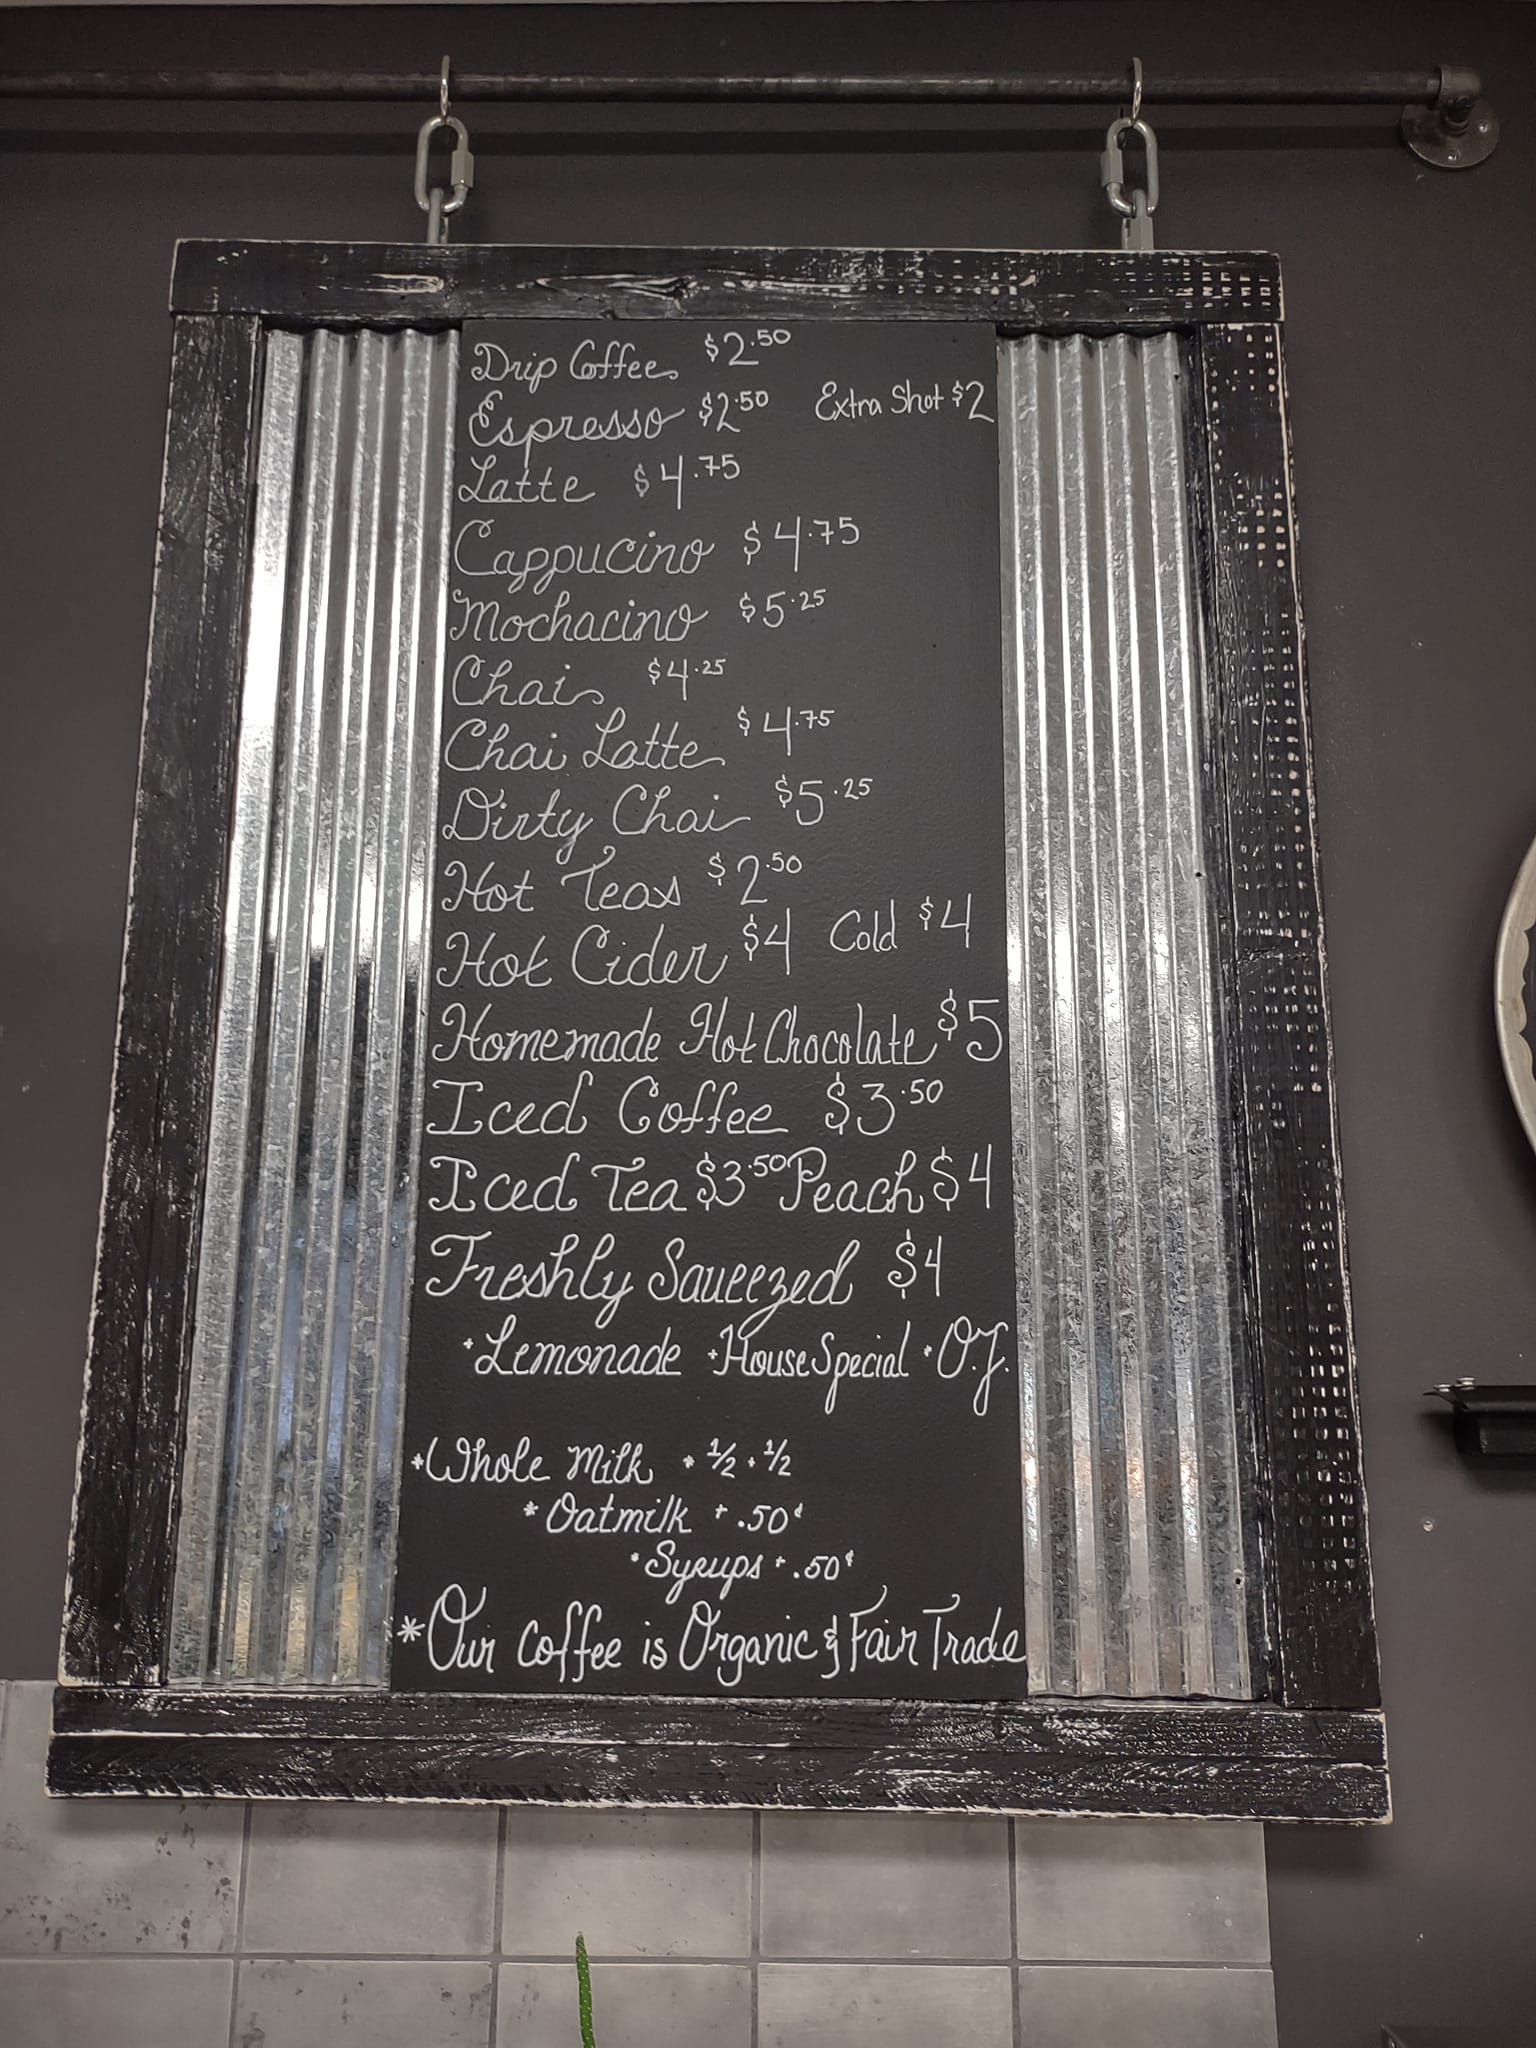 Drip Coffee $2.50
Espresso $2.50 Extra Shot $2
Latte $4.75
Cappucino $4.75
Mochacino $5.25
Chai $4.25
Chai Latte $4.75
Dirty Chai $5.25
Hot Teas $2.50
Hot Cider $4 Cold $4
Homemade Hot Chocolate $5
Iced Coffee $3.50
Iced Tea $3.50 Peach $4
Freshly Saueezed $4
• Lemonade • House Special • O.J.
* Whole Milk * 1/2 • 1/2
* Oatmilk + .50¢
* Syrups + .50¢
* Our Coffee is Organic & Fair Trade